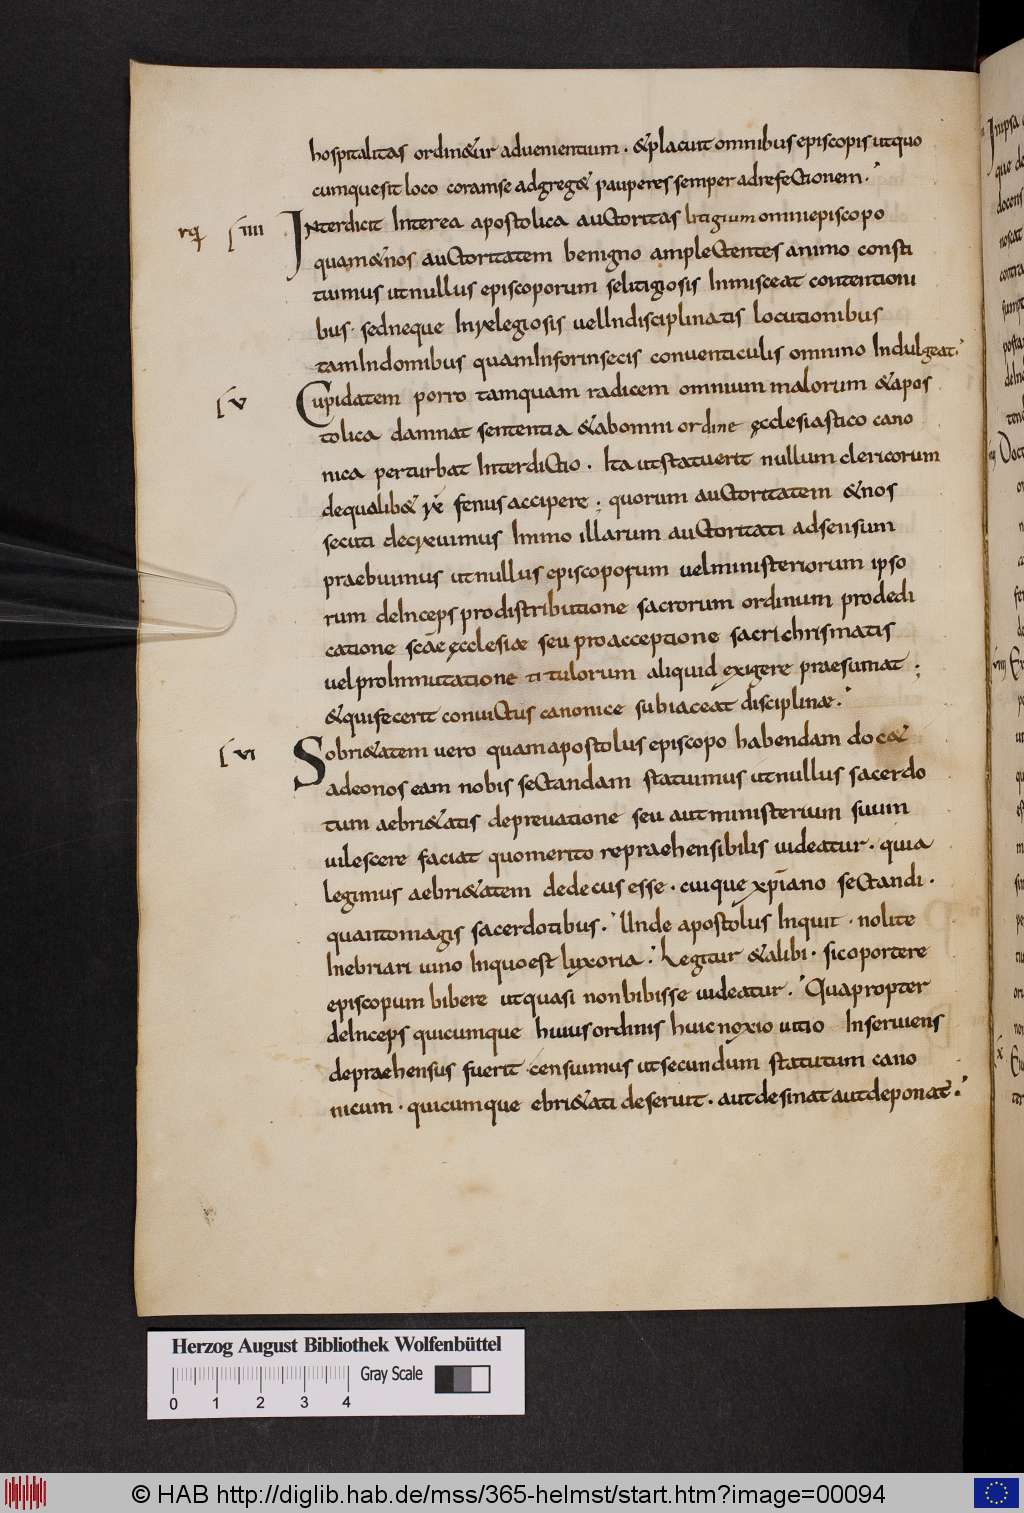 hospitalitas ordin&ur aduenientium · & placuit omnibus episcopis ut quo
cumque sit loco coram se adgreg& pauperes semper ad refectionem .
rq̅
[IIII
Interdicit Interea apostolica auctoritas litigium omni episcopo
quam & nos auctoritatem benigno amplectentes animo consti
tuimus ut nullus episcoporum se litigiosis Inmisceat contentioni
bus · sed neque Inrelegiosis uel Indisciplinatis locutionibus
tam Indomibus quam Inforinsecis conuenticulis omnino Indulgeat .
[V
Cupidatem porro tamquam radicem omnium malorum & apos
tolica damnat sententia & ab omni ordine ęcclesiastico cano
nica perturbat Interdictio . Ita ut statuerit nullum clericorum
de qualib& re fenus accipere ; quorum auctoritatem & nos
secuti decreuimus Immo illarum auctoritati adsensum
praebuimus ut nullus episcoporum uel ministeriorum ipso
rum deInceps pro distributione sacrorum ordinum pro dedi
catione scae̅ ęcclesiæ seu pro acceptione sacri chrismatis
uel pro Inmutatione titulorum aliquid exigere praesumat ;
& qui fecerit conuictus canonice subiaceat disciplinæ .
[VI
Sobri&atem uero quam apostolus episcopo habendam doc&
adeo nos eam nobis sectandam statuimus ut nullus sacerdo
tum aebri&atis depreuatione seu aut ministerium suum
uilescere faciat quo merito repraehensibilis uideatur · quia
legimus aebri&atem dedecus esse · cuique xp̅iano sectandi ·
quanto magis sacerdotibus . Unde apostolus Inquit · nolite
Inebriari uino In quo est luxoria . Legitur & alibi · sic oportere
episcopum bibere ut quasi non bibisse uideatur . Quapropter
deInceps quicumque huius ordinis huic noxio uitio Inseruiens
depraehensus fuerit · censuimus ut secundum statutum cano
nicum · quicumque ebri&ati deseruit · aut desinat aut deponat̅ .
Herzog August Bibliothek Wolfenbüttel
Gray Scale
0 1 2 3 4
© HAB http://diglib.hab.de/mss/365-helmst/start.htm?image=00094